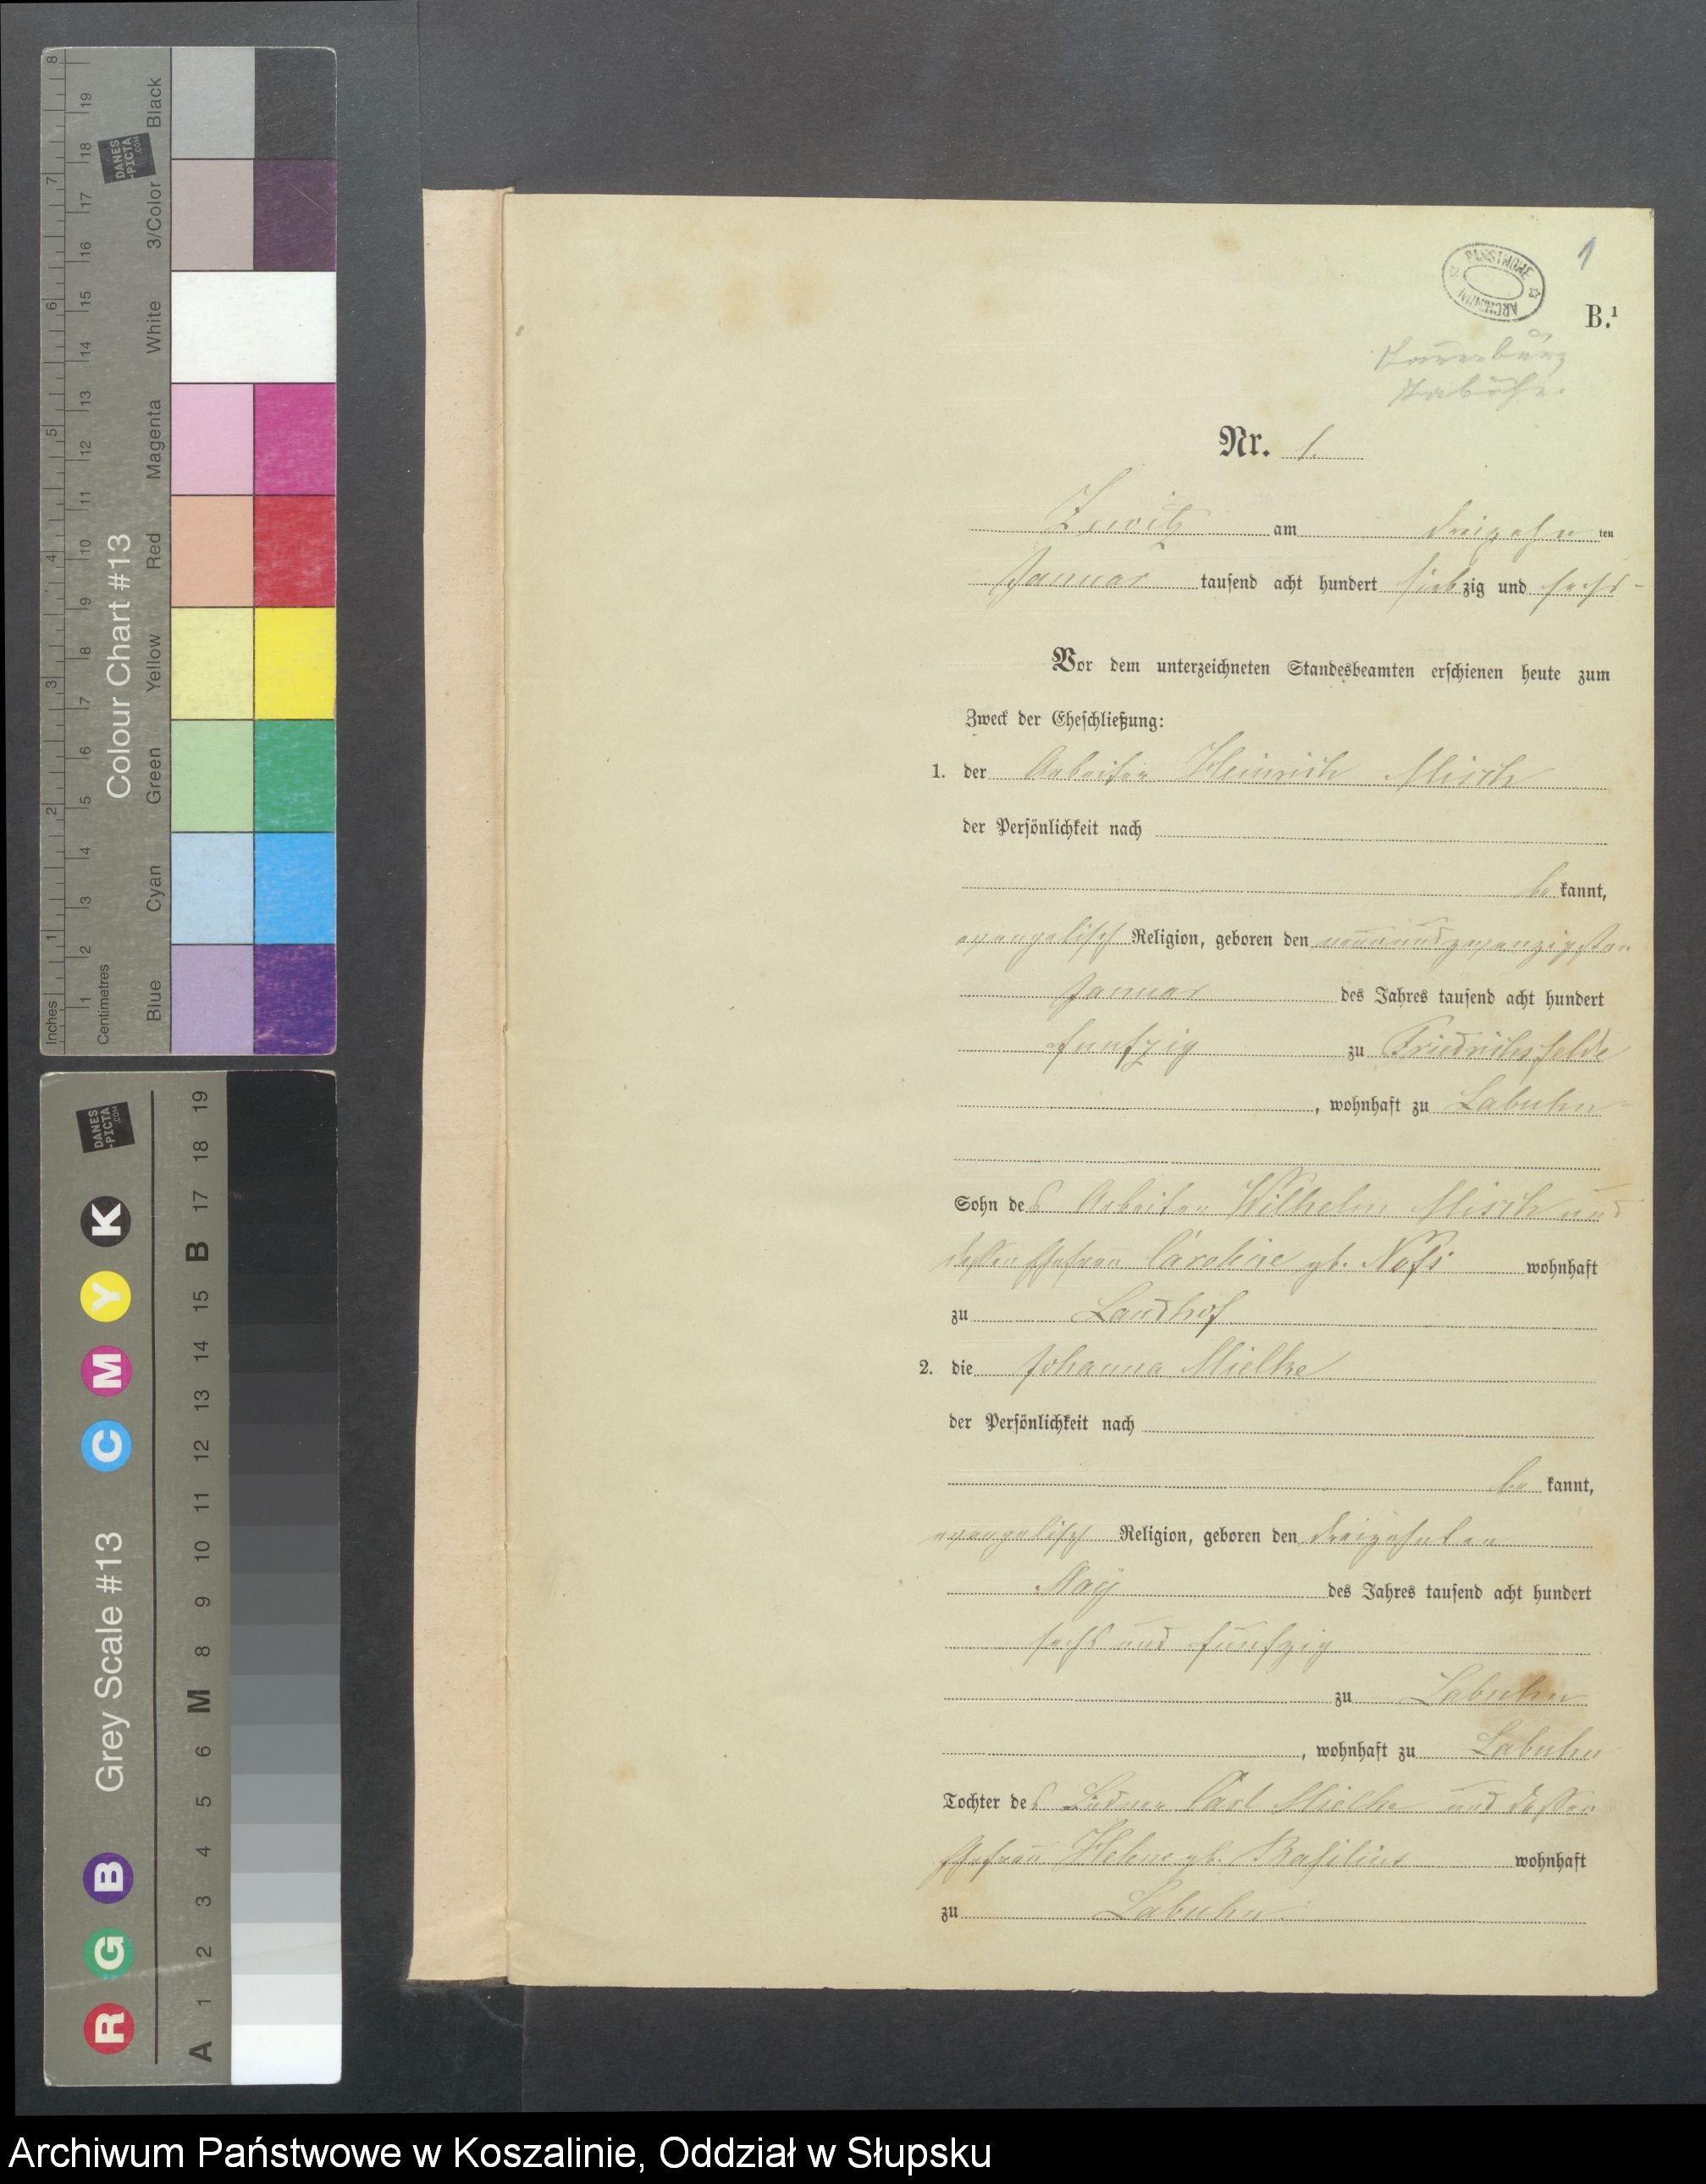 8
7
6
5
4
3
2
1
Inches
19
18
17
16
15
14
13
12
11
10
9
8
7
6
5
4
3
2
1
Centimetres
Colour Chart #13
DANES
-PICTA
.COM
Black
3/Color
White
Magenta
Red
Yellow
Green
Cyan
Blue
DANES
-PICTA
.COM
K
Y
M
C
Grey Scale #13
B
G
R
19
18
17
B
15
14
13
12
11
10
9
8
M
6
5
4
3
2
1
A
1
PAŃSTWOWE
ARCHIWUM
B.¹
Nr. 1.
Zewitz am dreizehn ten
Januar tausend acht hundert siebzig und sechs
Vor dem unterzeichneten Standesbeamten erschienen heute zum
Zweck der Eheschließung:
1. der Arbeiter Heinrich Misch
der Persönlichkeit nach
be kannt,
evangelisch Religion, geboren den neunundzwanzigsten
Januar des Jahres tausend acht hundert
funfzig zu Friedrichsfelde
, wohnhaft zu Labuhn
Sohn des Arbeiter Wilhelm Misch und
dessen Ehefrau Caroline gb. wohnhaft
zu Landhof
2. die Johanna Mielke
der Persönlichkeit nach
be kannt,
evangelisch Religion, geboren den dreizehnten
May des Jahres tausend acht hundert
sechs und funfzig
zu Labuhn
, wohnhaft zu Labuhn
Tochter des Carl Mielke und dessen
Ehefrau Helene gb. Basilius wohnhaft
zu Labuhn
Archiwum Państwowe w Koszalinie, Oddział w Słupsku